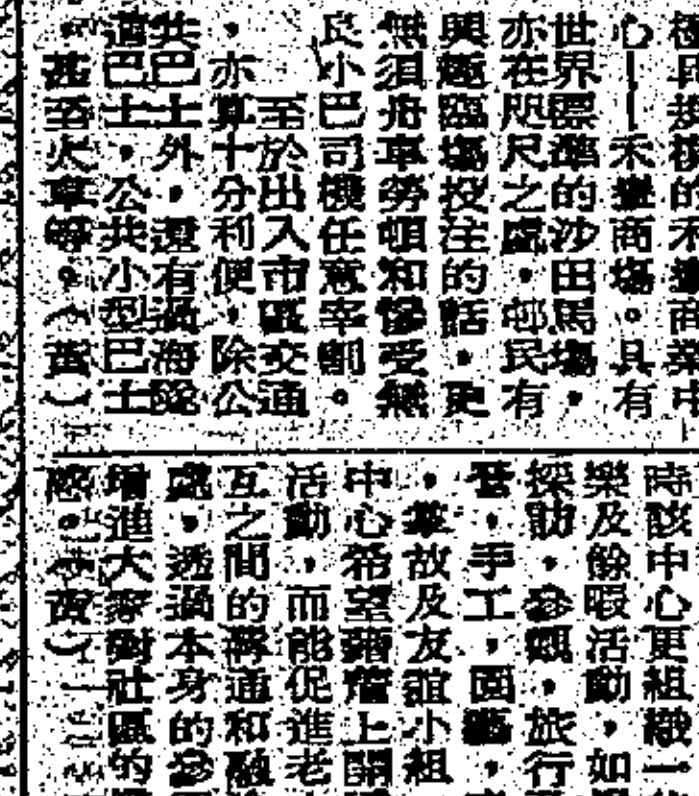 極具規模的禾輋商業中
心——禾輋商場。具有
世界標準的沙田馬場,
亦在咫尺之處,邨民有
興趣臨場投注的話,更
無須舟車勞頓和慘受無
良小巴司機任意宰割。
至於出入市區交通
,亦算十分利便,除公
共巴士外,還有過海隧
道巴士,公共小型巴士
,甚至火車等。(黃)
時該中心更組織一
樂及餘暇活動,如
探訪,參觀,旅行
營,手工,園藝,
,掌故及友誼小組
中心希望藉著上開
活動,而能促進老
互之間的溝通和融
處,透過本身的參
增進大家對社區的
感。(黃)